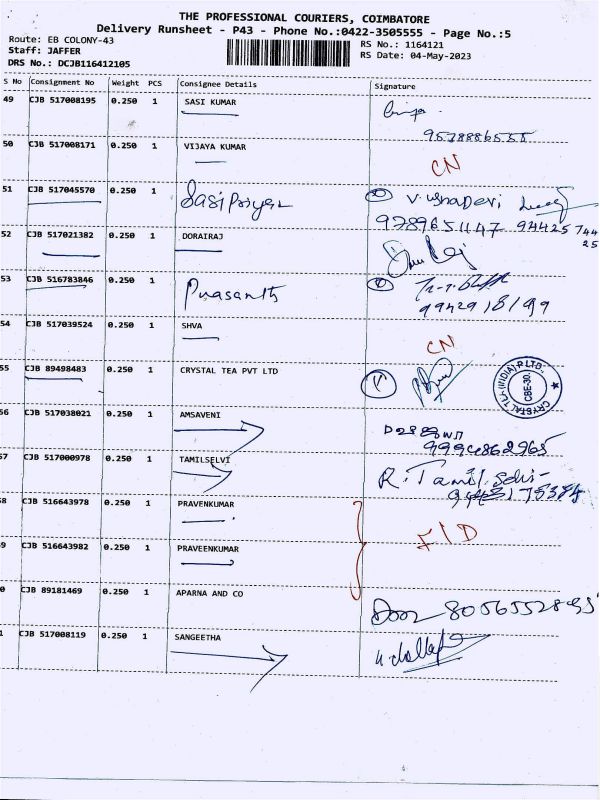 THE PROFESSIONAL COURIERS, COIMBATORE
Delivery Runsheet - P43 - Phone No.:0422-3505555 - Page No.:5
Route: EB COLONY-43
Staff: JAFFER
DRS No.: DCJB116412105
RS No.: 1164121
RS Date: 04-May-2023
S No Consignment No Weight PCS Consignee Details Signature
49 CJB 517008195 0.250 1 SASI KUMAR
9578886555
50 CJB 517008171 0.250 1 VIJAYA KUMAR CN
51 CJB 517045570 0.250 1 Sasipriya V. UshaDevi
9789651147 9442574425
52 CJB 517021382 0.250 1 DORAIRAJ
53 CJB 516783846 0.250 1 Prasanth
9942918199
54 CJB 517039524 0.250 1 SHVA CN
55 CJB 89498483 0.250 1 CRYSTAL TEA PVT LTD
CRYSTAL TEA (INDIA) P. LTD. CBE-30.
56 CJB 517038021 0.250 1 AMSAVENI
9994862965
57 CJB 517000978 0.250 1 TAMILSELVI R. Tamil Selvi
8 CJB 516643978 0.250 1 PRAVENKUMAR
9 CJB 516643982 0.250 1 PRAVEENKUMAR
0 CJB 89181469 0.250 1 APARNA AND CO
1 CJB 517008119 0.250 1 SANGEETHA